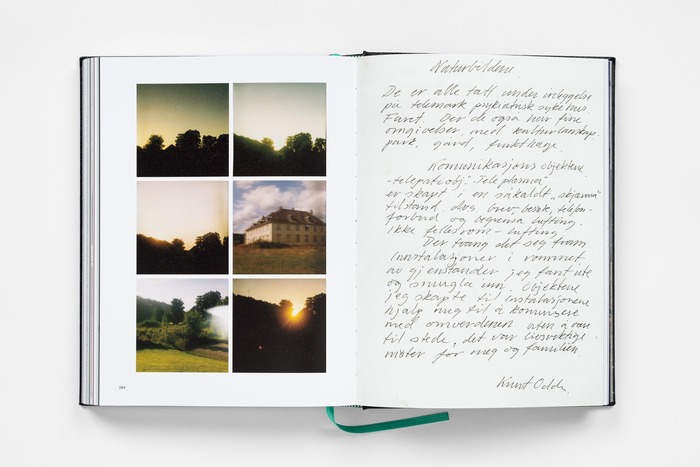 Naturbildene
De er alle tatt under innleggelse
på telemark psykiatrisk sykehus
Faret. Der de også har fine
omgivelser med kulturlanskap.
park, gård, frukthage.
Komunikasjons objektene
-telepatiobj." Tele plasma"
er skapt i en såkaldt „skjerma"
tilstand, dvs. brev-, besøk, telefon-
forbud og begrensa lufting.
ikke fellesrom - lufting
Der tvang det seg fram
Innstalasjoner i rommet
av gjenstander jeg fant ute
og smugla inn. Objektene
jeg skapte til instalasjonene
hjalp meg til å komunisere
med omverdenen uten å være
til stede, det var livsviktige
møter for meg og familien.
Knut Odde.